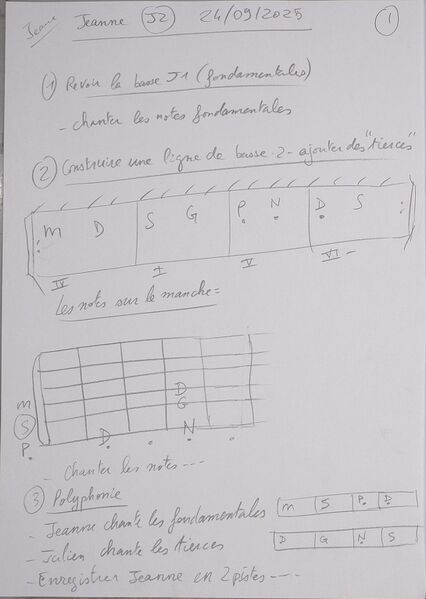 Jeanne Jeanne J2 24/09/2025 1
1 Revoir la basse J1 (fondamentales)
- chanter les notes fondamentales
2 Construire une ligne de basse -2- ajouter des "tierces"
: M D S G P N D S :
IV I V VI -
Les notes sur le manche =
D
M G
S
P D N
- Chanter les notes ---
3 Polyphonie
- Jeanne chante les fondamentales M S P D
- Julien chante les tierces D G N S
- Enregistrer Jeanne en 2 pistes ----